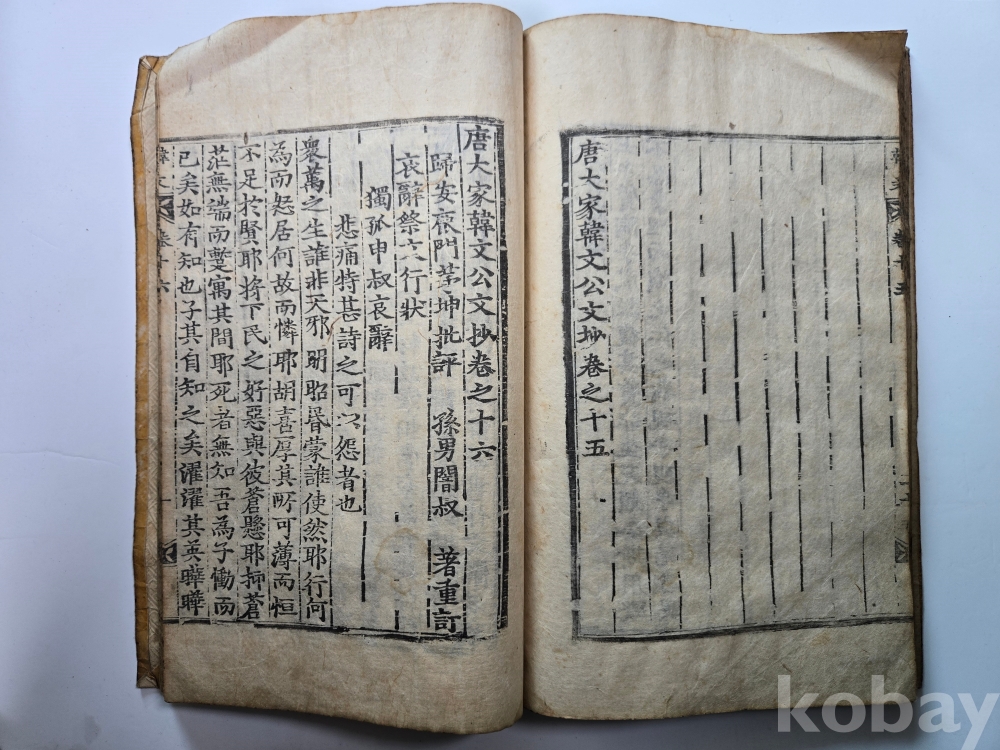 唐大家韓文公文抄卷之十五
唐大家韓文公文抄卷之十六
歸安鹿門茅坤批評 孫男闇叔 著重訂
哀辭祭文行狀
獨孤申叔哀辭
悲痛特甚詩之可以怨者也
衆萬之生誰非天邪明昭昬蒙誰使然耶行何
為而怒居何故而憐耶胡喜厚其所可薄而恒
不足於賢耶將下民之好惡與彼蒼懸耶抑蒼
茫無端而蹔寓其間耶死者無知吾為子慟而
已矣如有知也子其自知之矣濯濯其英曄曄
韓文 卷十六
kobay